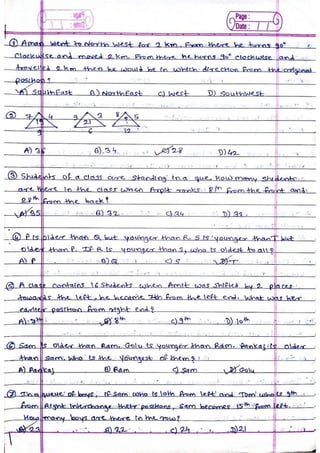 Page :
Date :
① Aman went to North West for 2 km. From there he turns 90°
Clockwise and moved 2 km. From there he turns 90° clockwise and
travelled 2 km then he would be in which direction from the original
position?
A) SouthEast B) NorthEast C) West D) SouthWest
② 7 4 3 3 8 5
19 21
9 6 12
A) 36 B) 34 C) 28 D) 42
③ Students of a class are standing in a que. How many students
are there in the class when Arpit ranks 8th from the front and
28th from the back?
A) 35 B) 32 C) 34 D) 31
④ P is older than Q but younger than R. S is younger than T but
older than P. If R is younger than S, who is oldest to all?
A) P B) Q C) S D) T
⑤ A class contains 16 students when Amit was shifted by 2 places
towards the left, he become 7th from the left end. What was her
earlier position from right end?
A) 7th B) 8th C) 9th D) 10th
⑥ Sam is older than Ram. Golu is younger than Ram. Pankaj is older
than Sam. who is the youngest of them?
A) Pankaj B) Ram C) Sam D) Golu
⑦ In a queue of boys, if Sam who is 10th from left and Tom who is 9th
from Right interchange their positions, Sam becomes 15th from left.
How many boys are there in the row?
A) 23 B) 22 C) 24 D) 21